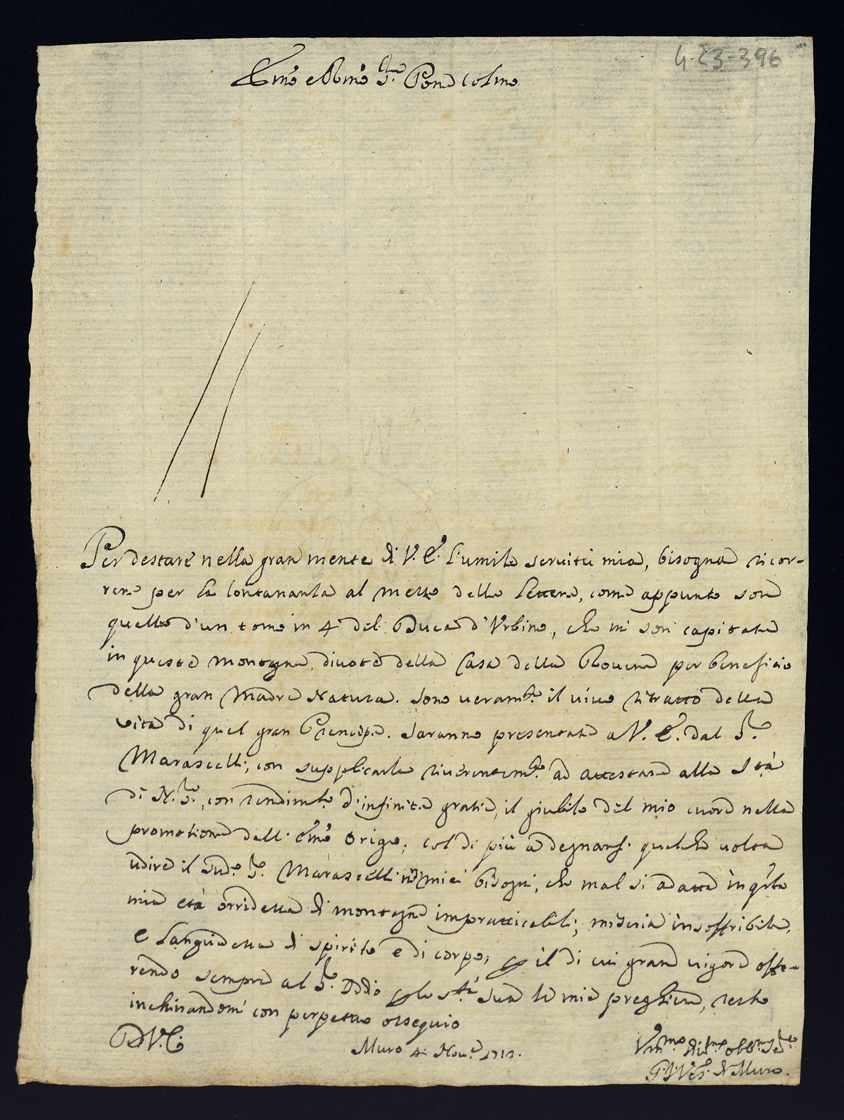 4-23-396
Em̃o e Rm̃o Sig.re Pad.ne Col.mo
Per destare nella gran mente di V. E. l'umile servitù mia, bisogna ricor-
rere per la lontananza al mezzo delle lettere, come appunto sono
quelle d'un tomo in 4.° del Duca d'Urbino, che mi son capitate
in queste montagne, divote della Casa della Rovere per beneficio
della gran Madre Natura. Sono veram.te il vivo ritratto della
vita di quel gran Prencipe. Saranno presentate a V. E. dal S.r
Marascelli, con supplicarla riverentem.te ad attestare alla S.tà
di N. S.re, con rendim.to d'infinite gratie, il giubilo del mio cuore nella
promotione dell' Em̃o Origo; col di più a degnarsi qualche volta
udire il Sud.o S.r Marascelli ne' miei bisogni, che mal si adatta in q̃sta
mia età orridezza di montagne impratticabili; miseria insoffribile,
e languidezza di spirito e di corpo; il di cui gran vigore offe-
rendo sempre al S.r Iddio le mie preghiere, resto
inchinandomi con perpetuo ossequio
D. V. E.
Muro 4 Nov.e 1712.
G. Ves.o di Muro.